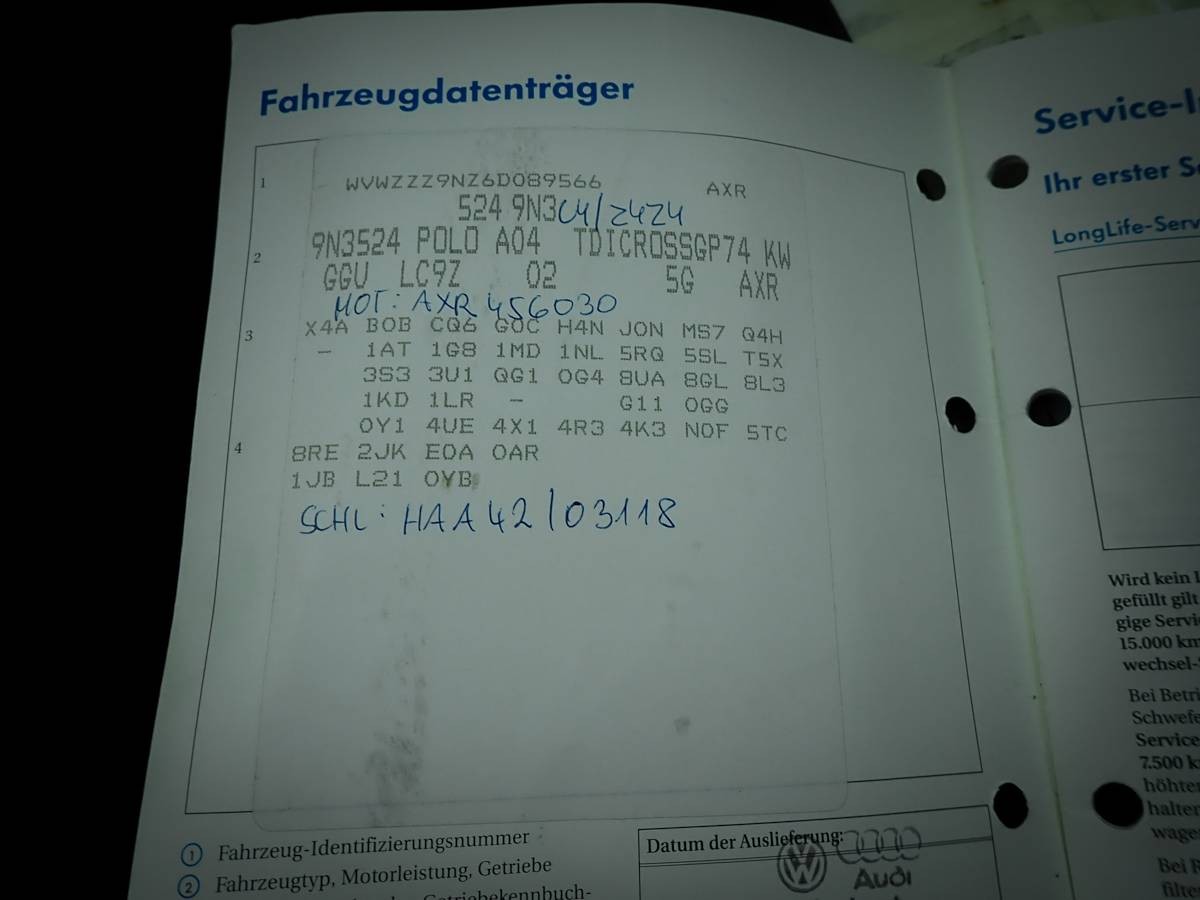 Fahrzeugdatenträger
1 WVWZZZ9NZ6D089566 AXR
524 9N3 C4/2424
2 9N3524 POLO A04 TDICROSSGP74 KW
GGU LC9Z 02 5G AXR
MOT: AXR 456030
3 X4A B0B CQ6 G0C H4N J0N MS7 Q4H
- 1AT 1G8 1MD 1NL 5RQ 5SL T5X
3S3 3U1 QG1 0G4 8UA 8GL 8L3
1KD 1LR - G11 0GG
0Y1 4UE 4X1 4R3 4K3 N0F 5TC
4 8RE 2JK E0A 0AR
1JB L21 0YB
SCHL: HAA42/03118
① Fahrzeug-Identifizierungsnummer
② Fahrzeugtyp, Motorleistung, Getriebe
Datum der Auslieferung:
Audi
Service-
Ihr erster
LongLife-Serv
Wird kein
gefüllt gilt
gige Servi
15.000 km
wechsel-
Bei Betri
Schwefe
Service
7.500 k
höhter
halter
wage
Bei
filte